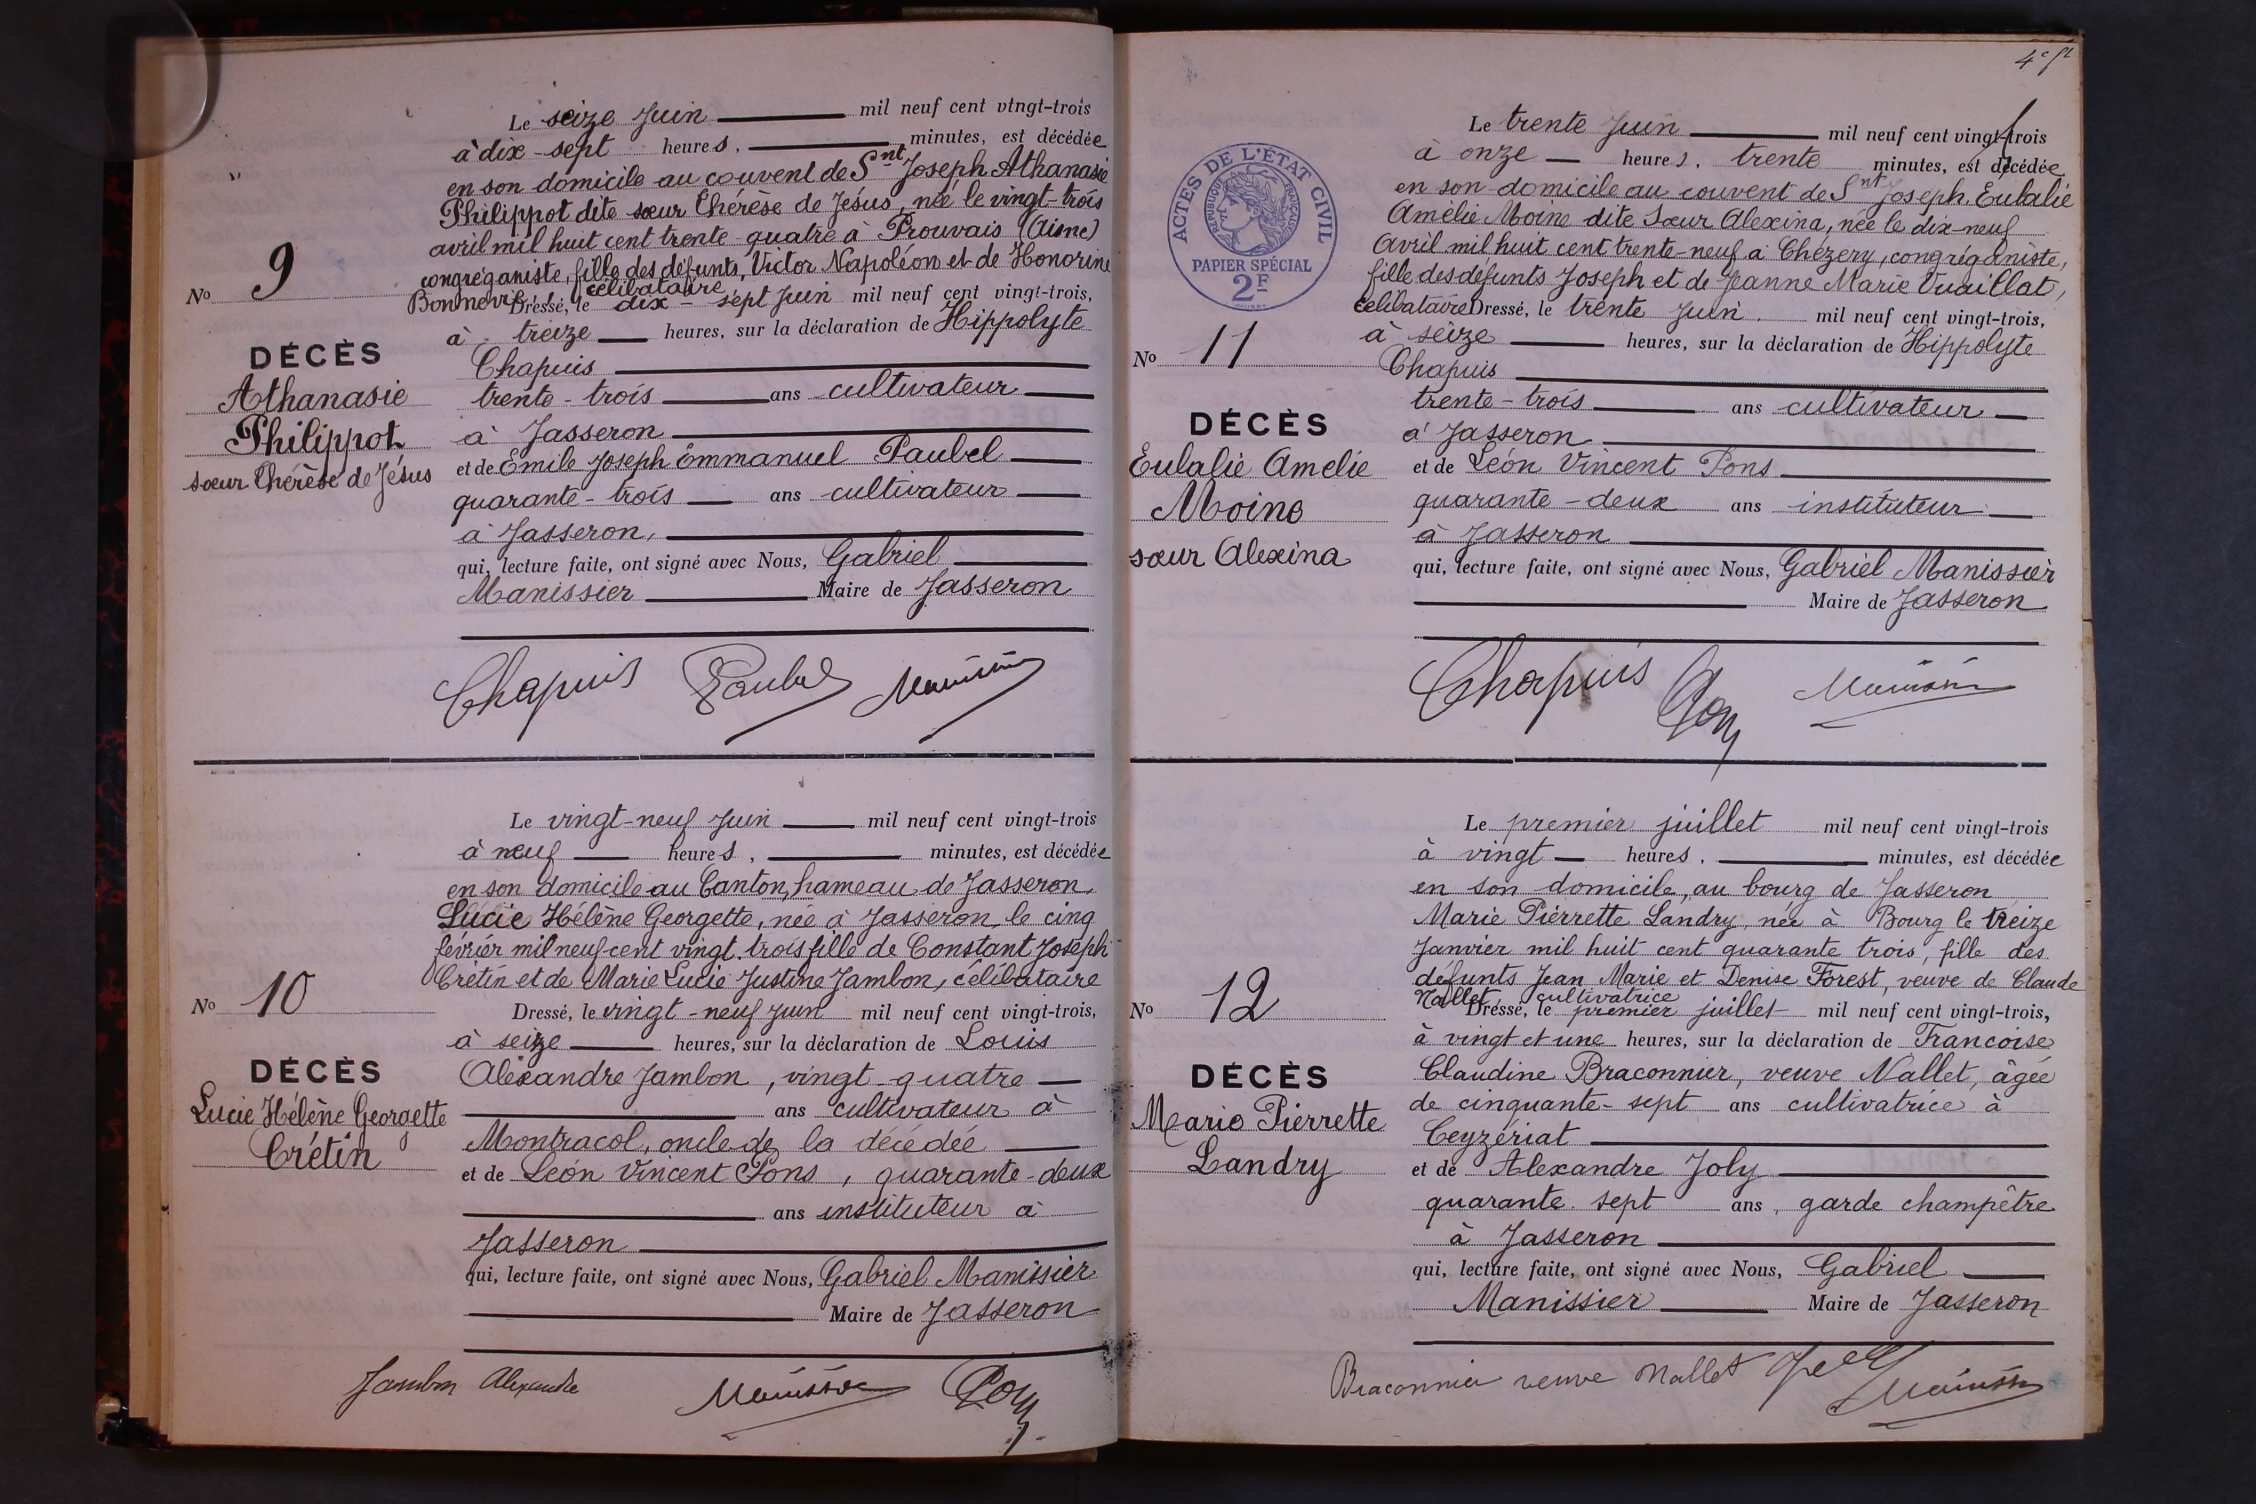 Le seize Juin mil neuf cent vingt-trois
à dix-sept heures, minutes, est décédée
en son domicile au couvent de Snt Joseph Athanasie
Philippot dite sœur Thérèse de Jésus, née le vingt-trois
avril mil huit cent trente-quatre à Prouvais (Aisne)
congréganiste, fille des défunts, Victor Napoléon et de Honorine
célibataire
Dressé, le dix-sept Juin mil neuf cent vingt-trois,
à treize heures, sur la déclaration de Hippolyte
Chapuis
trente-trois ans cultivateur
à Jasseron
et de Emile Joseph Emmanuel Paubel
quarante-trois ans cultivateur
à Jasseron,
qui, lecture faite, ont signé avec Nous, Gabriel
Manissier Maire de Jasseron
No 9
DÉCÈS
Athanasie
Philippot
sœur Thérèse de Jésus
Chapuis Paubel Manissier
Le vingt-neuf Juin mil neuf cent vingt-trois
à neuf heures, minutes, est décédée
en son domicile au Canton, hameau de Jasseron,
Lucie Hélène Georgette, née à Jasseron le cinq
février mil neuf cent vingt-trois fille de Constant Joseph
Crétin et de Marie Lucie Justine Jambon, célibataire
Dressé, le vingt-neuf Juin mil neuf cent vingt-trois,
à seize heures, sur la déclaration de Louis
Alexandre Jambon, vingt-quatre
ans cultivateur à
Montracol, oncle de la décédée
et de Léon Vincent Pons, quarante-deux
ans instituteur à
Jasseron
qui, lecture faite, ont signé avec Nous, Gabriel Manissier
Maire de Jasseron
No 10
DÉCÈS
Lucie Hélène Georgette
Crétin
Jambon Alexandre Manissier Pons
4e ft
ACTES DE L'ÉTAT CIVIL
RÉPUBLIQUE FRANÇAISE
PAPIER SPÉCIAL
2F
Le trente Juin mil neuf cent vingt-trois
à onze heures, trente minutes, est décédée
en son domicile au couvent de Snt Joseph. Eulalie
Amélie Moine dite Sœur Alexina, née le dix-neuf
Avril mil huit cent trente-neuf à Chézery, congréganiste,
fille des défunts Joseph et de Jeanne Marie Vuaillat,
célibataire Dressé, le trente Juin mil neuf cent vingt-trois,
à seize heures, sur la déclaration de Hippolyte
Chapuis
trente-trois ans cultivateur
à Jasseron
et de Léon Vincent Pons
quarante-deux ans instituteur
à Jasseron
qui, lecture faite, ont signé avec Nous, Gabriel Manissier
Maire de Jasseron
No 11
DÉCÈS
Eulalie Amelie
Moine
sœur Alexina
Chapuis Pons Manissier
Le premier juillet mil neuf cent vingt-trois
à vingt heures, minutes, est décédée
en son domicile, au bourg de Jasseron
Marie Pierrette Landry, née à Bourg le treize
Janvier mil huit cent quarante trois, fille des
défunts Jean Marie et Denise Forest, veuve de Claude
Nallet, cultivatrice
Dressé, le premier juillet mil neuf cent vingt-trois,
à vingt et une heures, sur la déclaration de Francoise
Claudine Braconnier, veuve Nallet, âgée
de cinquante-sept ans cultivatrice à
Ceyzériat
et de Alexandre Joly
quarante-sept ans, garde champêtre
à Jasseron
qui, lecture faite, ont signé avec Nous, Gabriel
Manissier Maire de Jasseron
No 12
DÉCÈS
Marie Pierrette
Landry
Braconnier veuve Nallet Joly Manissier